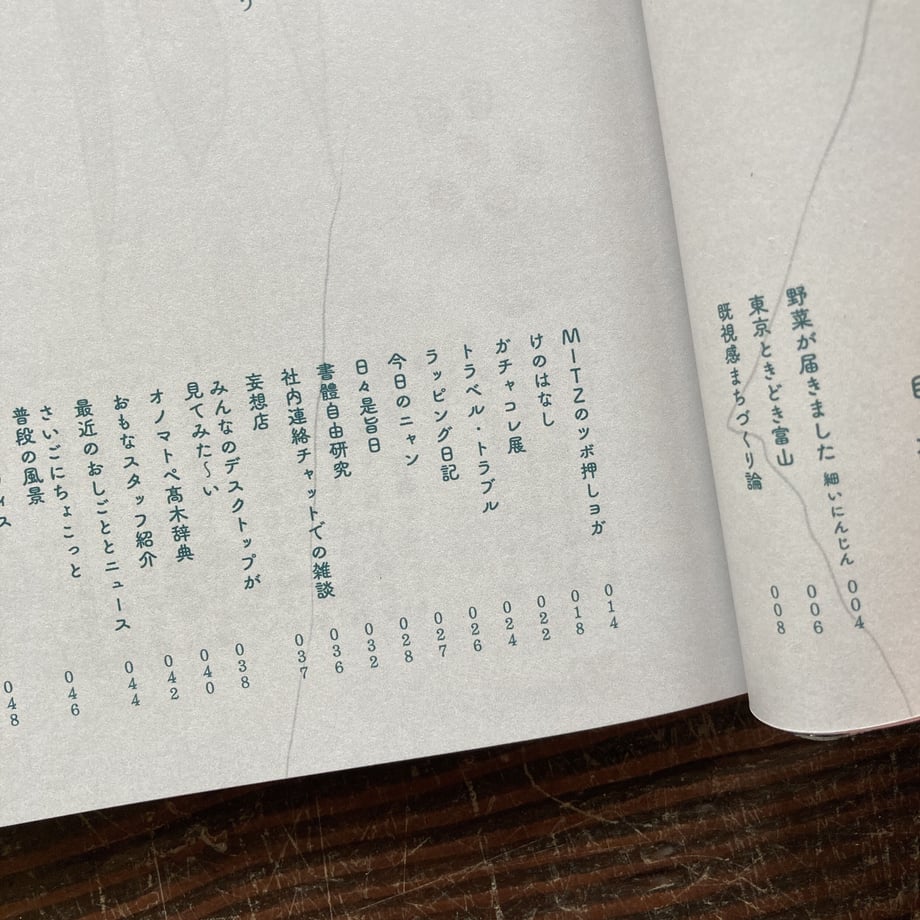 野菜が届きました 細いにんじん 004
東京ときどき富山 006
既視感まちづくり論 008
MITZのツボ押しヨガ 014
けのはなし 018
ガチャコレ展 022
トラベル・トラブル 024
ラッピング日記 026
今日のニャン 027
日々是旨日 028
書體自由研究 032
社内連絡チャットでの雑談 036
妄想店 037
みんなのデスクトップが
見てみた〜い 038
オノマトペ髙木辞典 040
おもなスタッフ紹介 042
最近のおしごととニュース 044
さいごにちょこっと 046
普段の風景 048